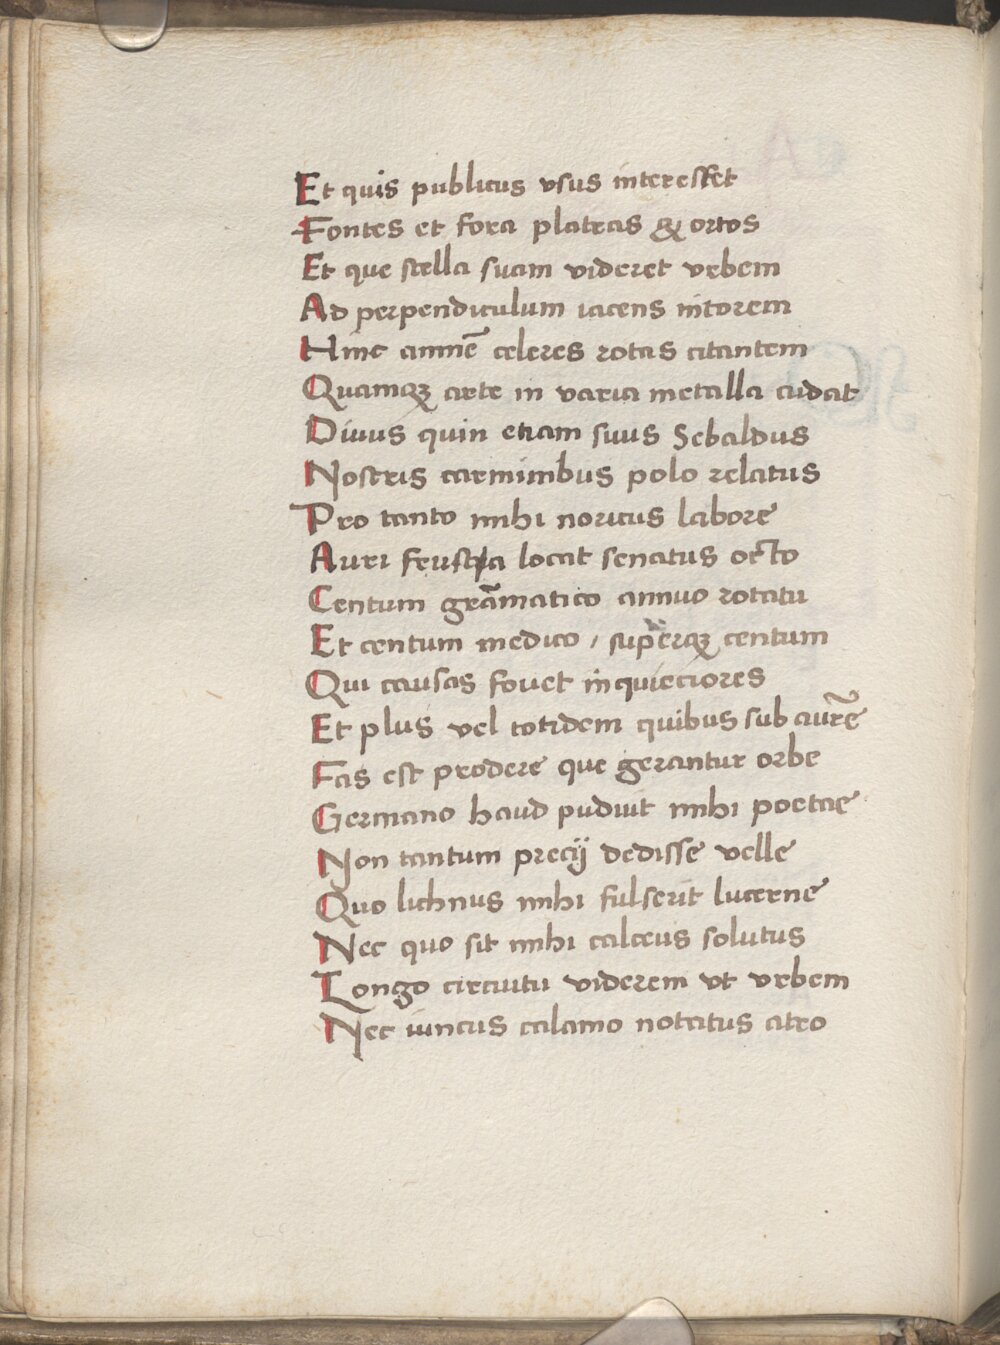 Et quis publicus vsus interesset
Fontes et fora plateas & ortos
Et que stella suam videret vrbem
Ad perpendiculum iacens intorem
Hinc amnē celeres rotas citantem
Quamqꝫ arte in varia metalla cudat
Diuus quin etiam suus Sebaldus
Nostris carminibus polo relatus
Pro tanto mihi noricus labore
Auri frustula locat senatus octo
Centum grāmatico annuo rotatu
Et centum medico / superqꝫ centum
Qui causas fouet inquieciores
Et plus vel totidem quibus sub aurē
Fas est prodere que gerantur orbe
Germano haud puduit mihi poetae
Non tantum precij dedisse velle
Quo lichnus mihi fulserit lucerne
Nec quo sit mihi calceus solutus
Longo circuitu viderem vt vrbem
Nec iuncus calamo notatus atro